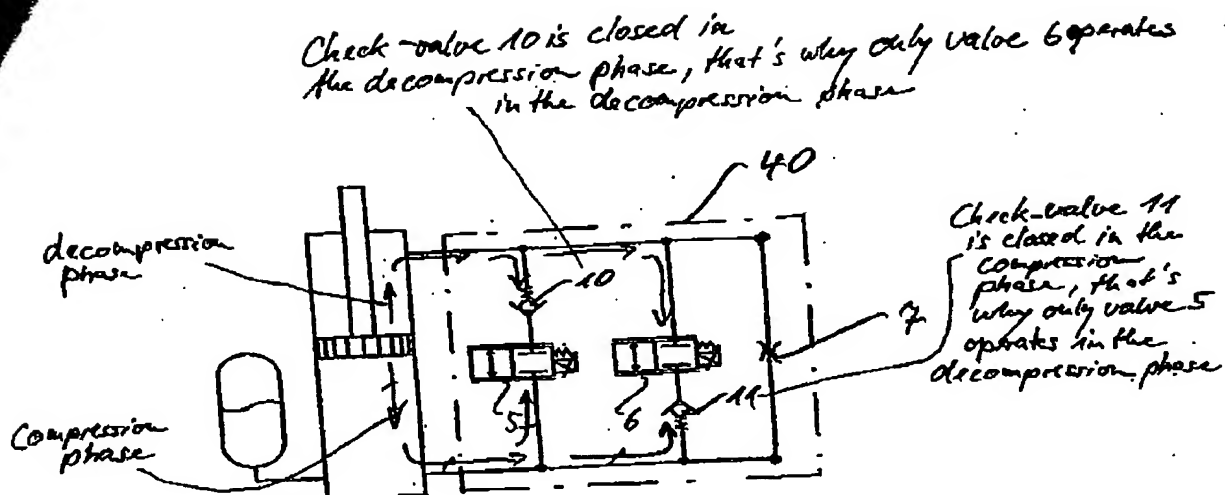 Check-valve 10 is closed in
the decompression phase, that's why only valve 6 operates
in the decompression phase
40
decompression
phase
10
Check-valve 11
is closed in the
compression
phase, that's
why only valve 5
operates in the
decompression phase
7
5
6
11
compression
phase